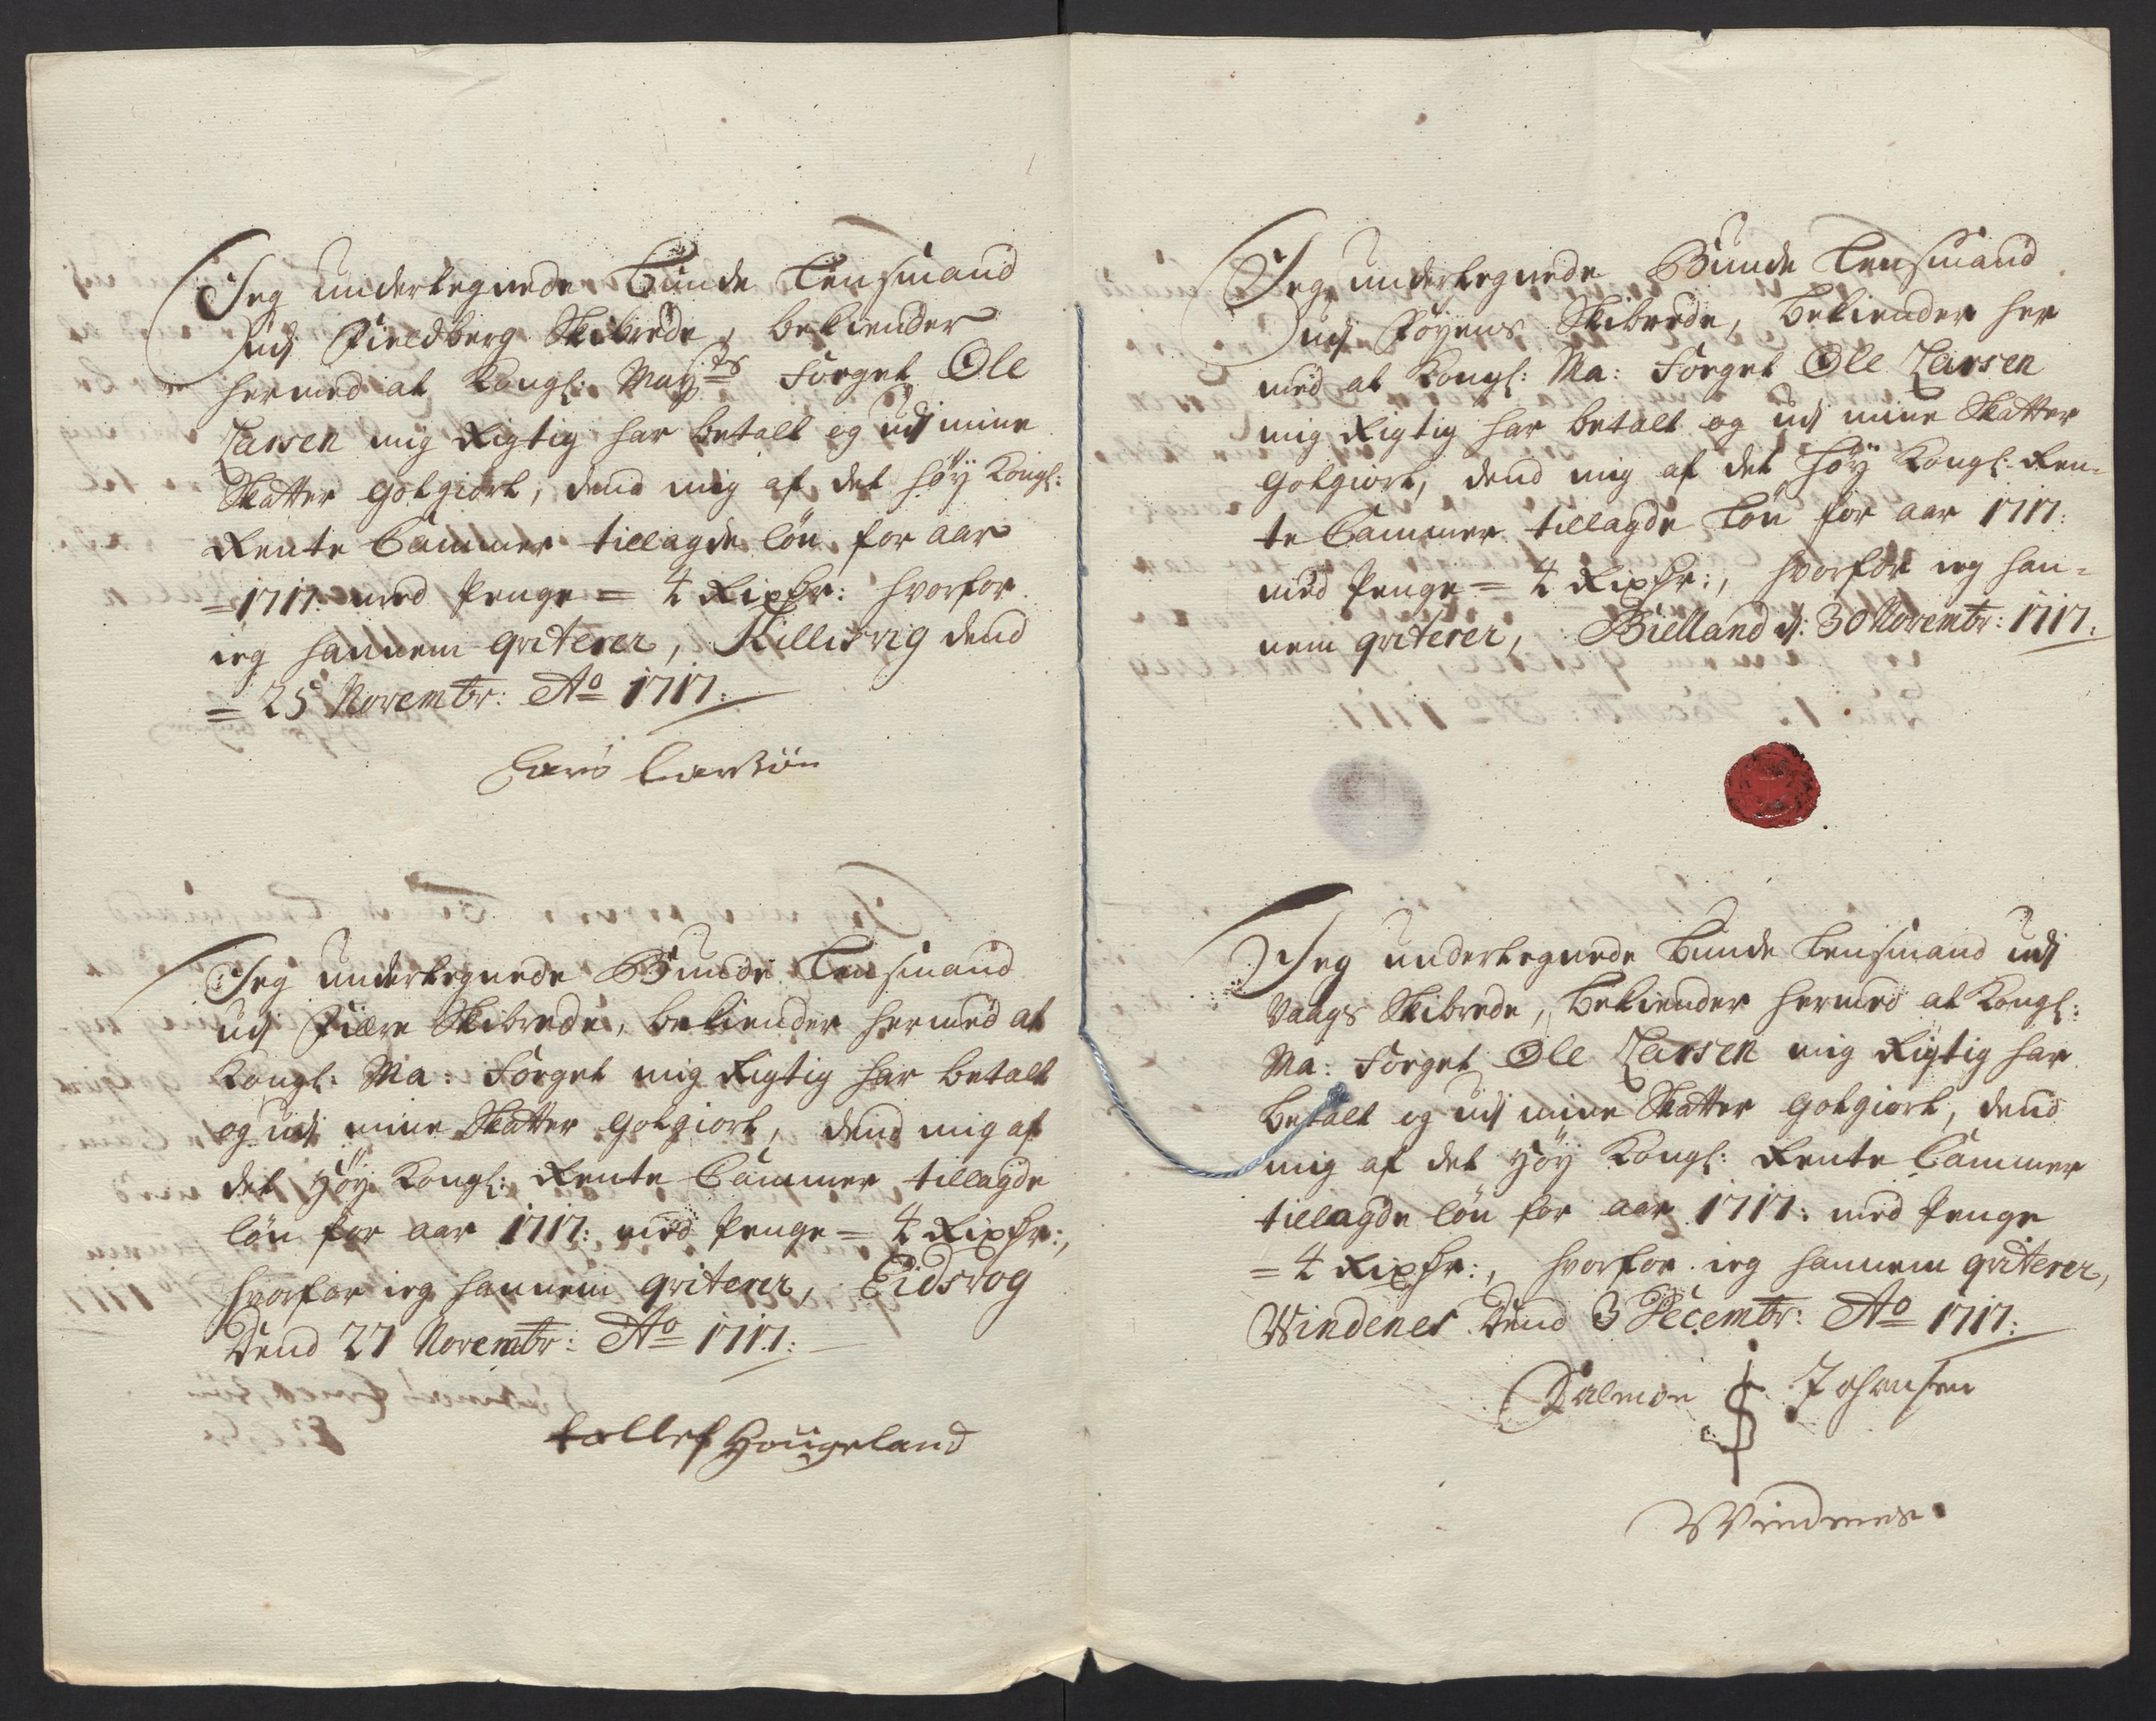 Jeg undertegnede Bunde Lensmand
udj Fieldberg Skibrede, bekiender
hermed at Kongl: May:ts Foeget Ole
Larsen mig Rigtig har betalt og udj mine
Skatter Gotgiort, dend mig af det høy Kongl:
Rente Cammer tillagde løn for aar
=1717: med Penge = 4 Rixdr: hvorfor
ieg hannem qviterer, Killisvig dend
= 25 Novembr: Ao 1717:
Lars Larsøn
Jeg undertegnede Bunde Lensmand
udj Fiære Skibrede, bekiender hermed at
Kongl: Ma: Foeget mig Rigtig har betalt
og udj mine Skatter Gotgiort, dend mig af
det Høy Kongl: Rente Cammer tillagde
løn for aar 1717: med Penge = 4 Rixdr:,
hvorfor ieg hannem qviterer, Eidsvog
Dend 27 Novembr: Ao 1717:
tollef Hougeland
Jeg undertegnede Bunde Lensmand
udj Føyens Skibrede, bekiender her
med at Kongl: Ma: Foeget Ole Larsen
mig Rigtig har betalt og udj mine Skatter
Gotgiort, dend mig af det høy Kongl: Ren-
te Cammer tillagde løn for aar 1717:
med Penge = 4 Rixdr:, hvorfor ieg han-
nem qviterer, Bielland d: 30 Novembr: 1717:
Jeg undertegnede Bunde Lensmand udj
Vaags Skibrede, bekiender hermed at Kongl:
Ma: Foeget Ole Larsen mig Rigtig har
betalt og udj mine Skatter Gotgiort, dend
mig af det Høy Kongl: Rente Cammer
tillagde løn for aar 1717: med Penge
= 4 Rixdr:, hvorfor ieg hannem qviterer,
Windenes Dend 3 Decembr: Ao 1717:
Salmon Johansen
Windenes